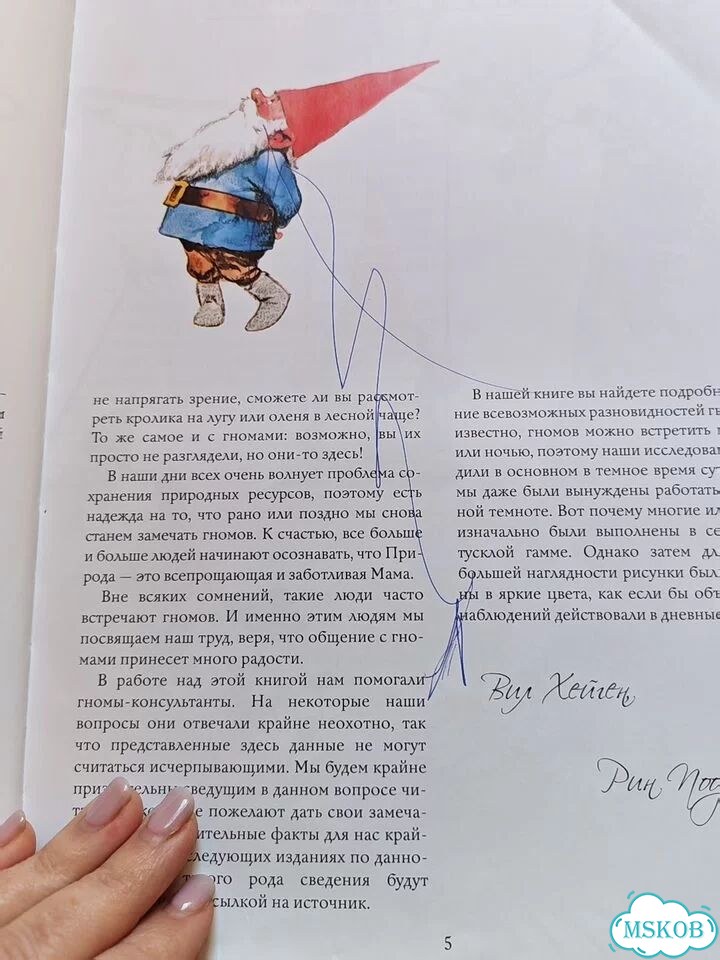 не напрягать зрение, сможете ли вы рассмот-
реть кролика на лугу или оленя в лесной чаще?
То же самое и с гномами: возможно, вы их
просто не разглядели, но они-то здесь!
В наши дни всех очень волнует проблема со-
хранения природных ресурсов, поэтому есть
надежда на то, что рано или поздно мы снова
станем замечать гномов. К счастью, все больше
и больше людей начинают осознавать, что При-
рода — это всепрощающая и заботливая Мама.
Вне всяких сомнений, такие люди часто
встречают гномов. И именно этим людям мы
посвящаем наш труд, веря, что общение с гно-
мами принесет много радости.
В работе над этой книгой нам помогали
гномы-консультанты. На некоторые наши
вопросы они отвечали крайне неохотно, так
что представленные здесь данные не могут
считаться исчерпывающими. Мы будем крайне
сведущим в данном вопросе чи-
пожелают дать свои замеча-
факты для нас край-
изданиях по данно-
рода сведения будут
ссылкой на источник.
В нашей книге вы найдете
ние всевозможных разновидностей
известно, гномов можно встретить
или ночью, поэтому наши
дили в основном в темное время
мы даже были вынуждены
ной темноте. Вот почему многие
изначально были выполнены в
тусклой гамме. Однако затем
большей наглядности рисунки
ны в яркие цвета, как если бы
наблюдений действовали в дневные
Вил Хейген
Рин
5
MSKOB